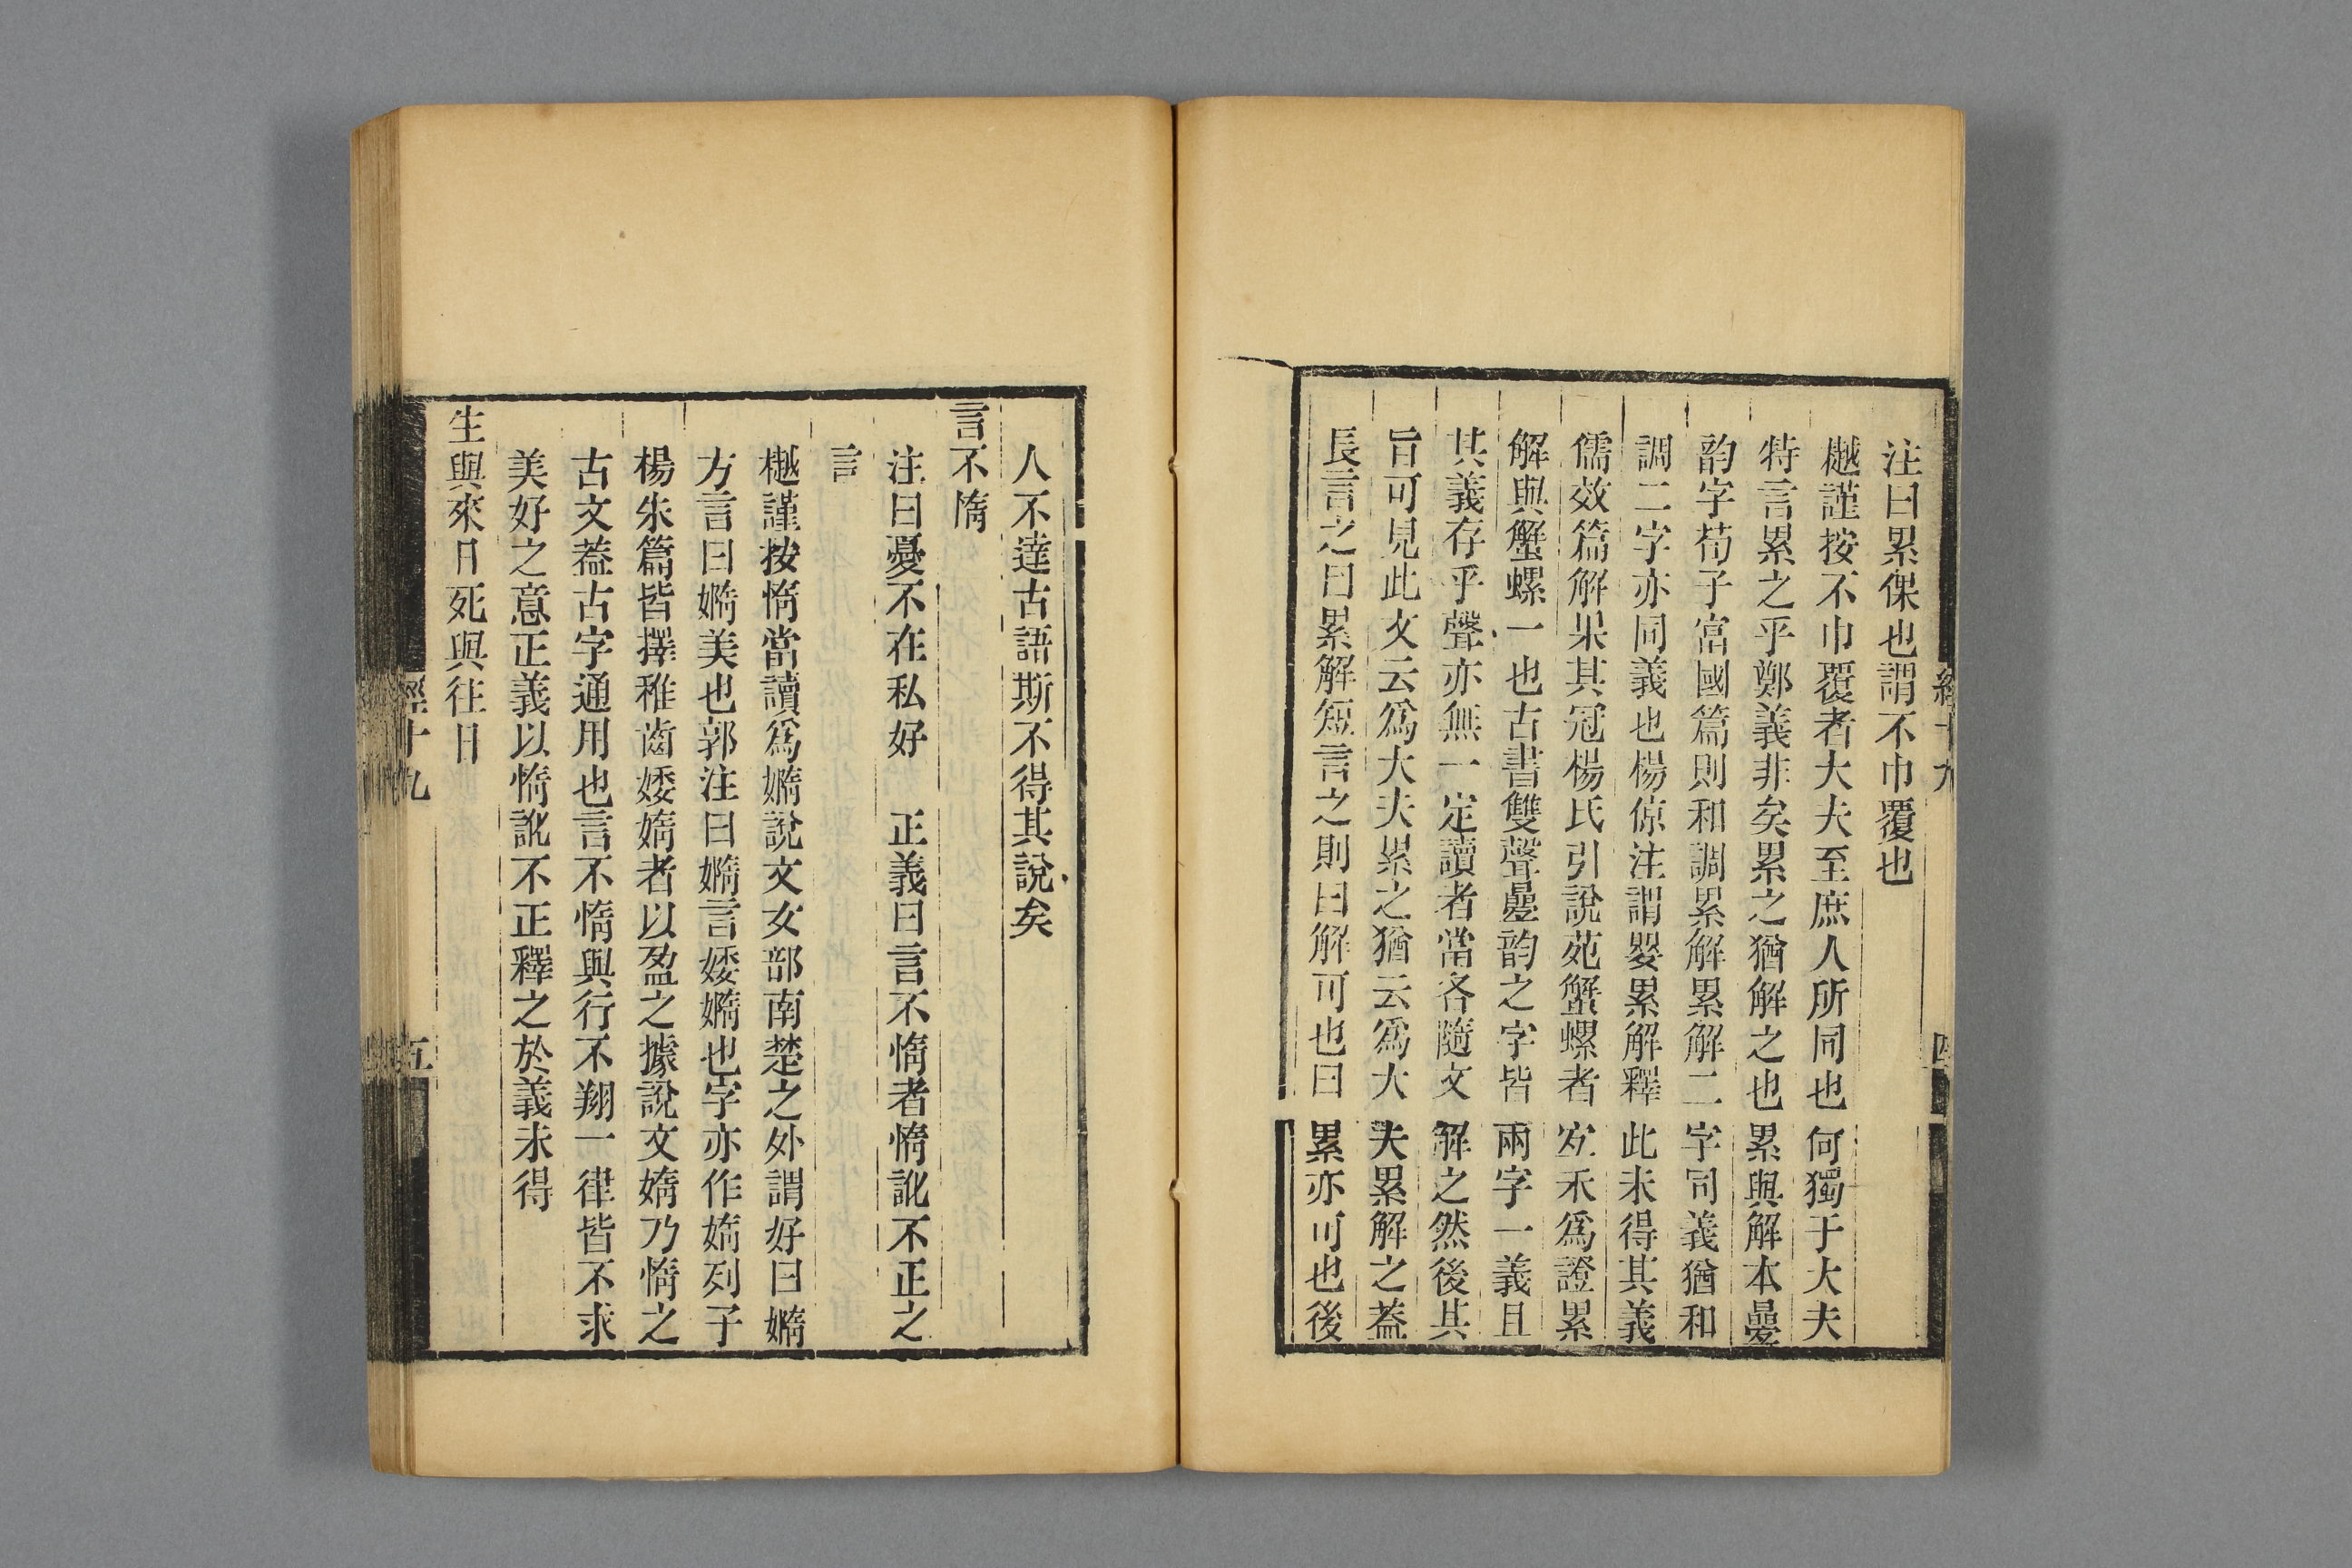 注曰累倮也謂不巾覆也
樾謹按不巾覆者大夫至庶人所同也何獨于大夫
特言累之乎鄭義非矣累之猶解之也累與解本曡
韵字荀子富國篇則和調累解累解二字同義猶和
調二字亦同義也楊倞注謂嬰累解釋此未得其義
儒效篇解果其冠楊氏引說苑蟹螺者宐禾爲證累
解與蟹螺一也古書雙聲曡韵之字皆兩字一義且
其義存乎聲亦無一定讀者當各隨文解之然後其
旨可見此文云爲大夫累之猶云爲大夫累解之葢
長言之曰累解短言之則曰解可也曰累亦可也後
經十九
四
人不達古語斯不得其說矣
言不惰
注曰憂不在私好　正義曰言不惰者惰訛不正之
言
樾謹按惰當讀爲嫷說文女部南楚之外謂好曰嫷
方言曰嫷美也郭注曰嫷言婑嫷也字亦作媠列子
楊朱篇皆擇稚齒婑媠者以盈之據說文媠乃惰之
古文葢古字通用也言不惰與行不翔一律皆不求
美好之意正義以惰訛不正釋之於義未得
生與來日死與往日
經十九
五